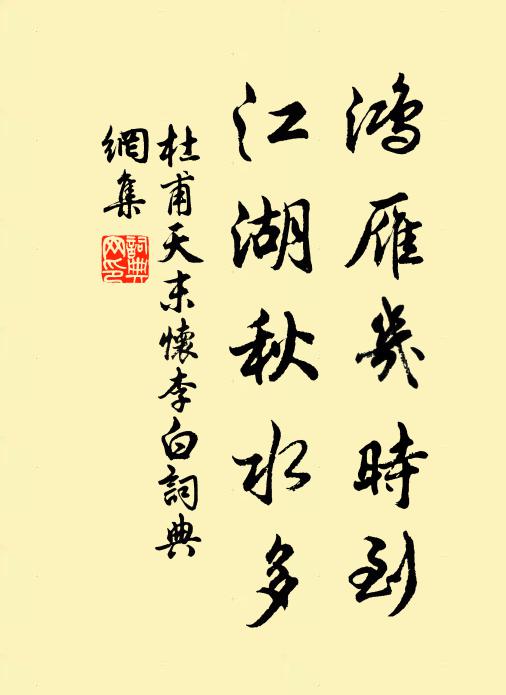 鴻雁幾時到
江湖秋水多
杜甫天末懷李白詞典
網集
詞典
网印